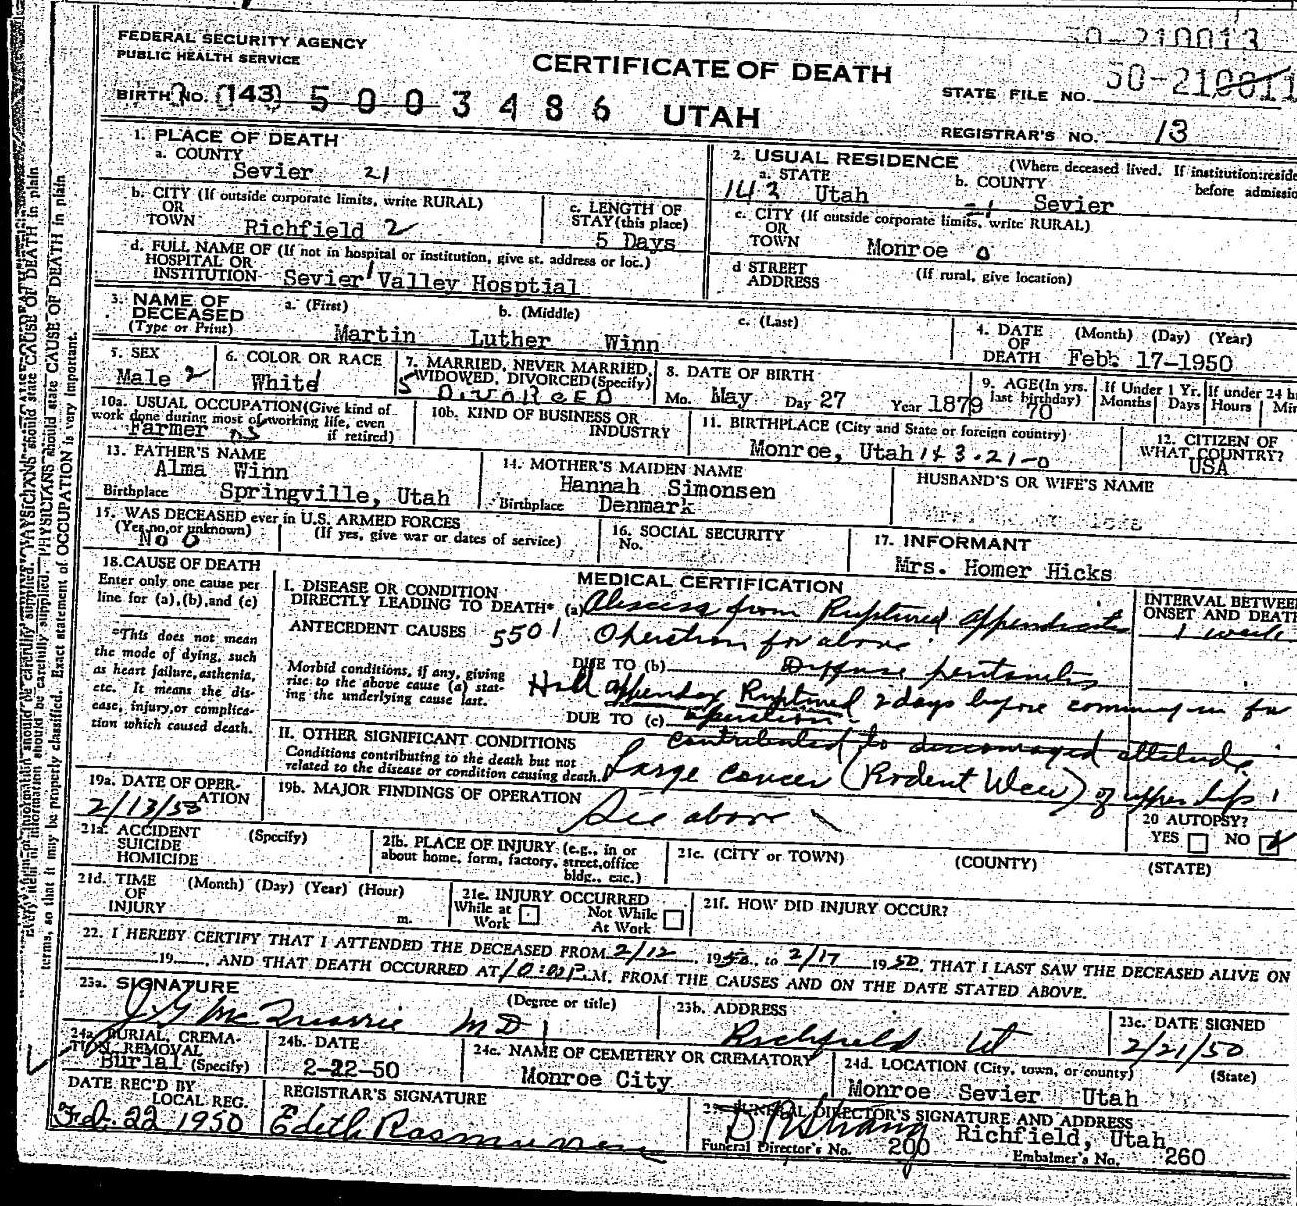 FEDERAL SECURITY AGENCY
PUBLIC HEALTH SERVICE
CERTIFICATE OF DEATH
50-210013
STATE FILE NO. 50-210011
BIRTH NO. (143) 5 0 0 3 4 8 6 UTAH
REGISTRAR'S NO. 13
1. PLACE OF DEATH
a. COUNTY
Sevier 21
2. USUAL RESIDENCE (Where deceased lived. If institution:reside
before admissio
a. STATE b. COUNTY
143 Utah 21 Sevier
b. CITY (If outside corporate limits, write RURAL)
OR
TOWN Richfield 2
c. LENGTH OF
STAY (this place)
5 Days
c. CITY (If outside corporate limits, write RURAL)
OR
TOWN Monroe 0
d. FULL NAME OF (If not in hospital or institution, give st. address or loc.)
HOSPITAL OR
INSTITUTION Sevier Valley Hosptial
d STREET (If rural, give location)
ADDRESS
3. NAME OF
DECEASED
(Type or Print)
a. (First) b. (Middle) c. (Last)
Martin Luther Winn
4. DATE (Month) (Day) (Year)
OF
DEATH Feb. 17-1950
5. SEX
Male 2
6. COLOR OR RACE
White
7. MARRIED, NEVER MARRIED,
WIDOWED, DIVORCED(Specify)
5 DIVORCED
8. DATE OF BIRTH
Mo. May Day 27 Year 1879
9. AGE(In yrs.
last birthday)
70
If Under 1 Yr.
Months Days
If under 24 h
Hours Min
10a. USUAL OCCUPATION(Give kind of
work done during most of working life, even
if retired)
Farmer
10b. KIND OF BUSINESS OR
INDUSTRY
11. BIRTHPLACE (City and State or foreign country)
Monroe, Utah 143-21-0
12. CITIZEN OF
WHAT COUNTRY?
USA
13. FATHER'S NAME
Alma Winn
Birthplace Springville, Utah
14. MOTHER'S MAIDEN NAME
Hannah Simonsen
Birthplace Denmark
HUSBAND'S OR WIFE'S NAME
15. WAS DECEASED ever in U.S. ARMED FORCES
(Yes,no,or unknown) (If yes, give war or dates of service)
No 0
16. SOCIAL SECURITY
No.
17. INFORMANT
Mrs. Homer Hicks
18. CAUSE OF DEATH
Enter only one cause per
line for (a),(b),and (c)
*This does not mean
the mode of dying, such
as heart failure, asthenia,
etc. It means the dis-
ease, injury,or complica-
tion which caused death.
MEDICAL CERTIFICATION
INTERVAL BETWEE
ONSET AND DEATH
I. DISEASE OR CONDITION
DIRECTLY LEADING TO DEATH* (a) Abscess from Ruptured appendicitis 1 week
ANTECEDENT CAUSES 5501 Operation for above
Morbid conditions, if any, giving
rise to the above cause (a) stat-
ing the underlying cause last.
DUE TO (b) Diffuse peritonitis
Had appendix Ruptured 2 days before coming in for
DUE TO (c) operation.
II. OTHER SIGNIFICANT CONDITIONS
Conditions contributing to the death but not
related to the disease or condition causing death.
contributed to discouraged attitude
Large cancer (Rodent Ulcer) of upper lip!
19a. DATE OF OPER-
ATION
2/13/50
19b. MAJOR FINDINGS OF OPERATION
See above
20 AUTOPSY?
YES NO X
21a. ACCIDENT (Specify)
SUICIDE
HOMICIDE
21b. PLACE OF INJURY (e.g., in or
about home, form, factory, street,office
bldg., etc.)
21c. (CITY or TOWN) (COUNTY) (STATE)
21d. TIME (Month) (Day) (Year) (Hour)
OF
INJURY m.
21e. INJURY OCCURRED
While at Work Not While At Work
21f. HOW DID INJURY OCCUR?
22. I HEREBY CERTIFY THAT I ATTENDED THE DECEASED FROM 2/12 1950, to 2/17 1950, THAT I LAST SAW THE DECEASED ALIVE ON
19 , AND THAT DEATH OCCURRED AT P.M. FROM THE CAUSES AND ON THE DATE STATED ABOVE.
23a. SIGNATURE (Degree or title)
J. G. McQuarrie MD
23b. ADDRESS
Richfield Ut
23c. DATE SIGNED
2/21/50
24a. BURIAL, CREMA-
TION, REMOVAL
Burial (Specify)
24b. DATE
2-22-50
24c. NAME OF CEMETERY OR CREMATORY
Monroe City
24d. LOCATION (City, town, or county) (State)
Monroe Sevier Utah
DATE REC'D BY
LOCAL REG.
Feb. 22 1950
REGISTRAR'S SIGNATURE
Edith Rasmussen
25. FUNERAL DIRECTOR'S SIGNATURE AND ADDRESS
Richfield, Utah
Funeral Director's No. 200 Embalmer's No. 260